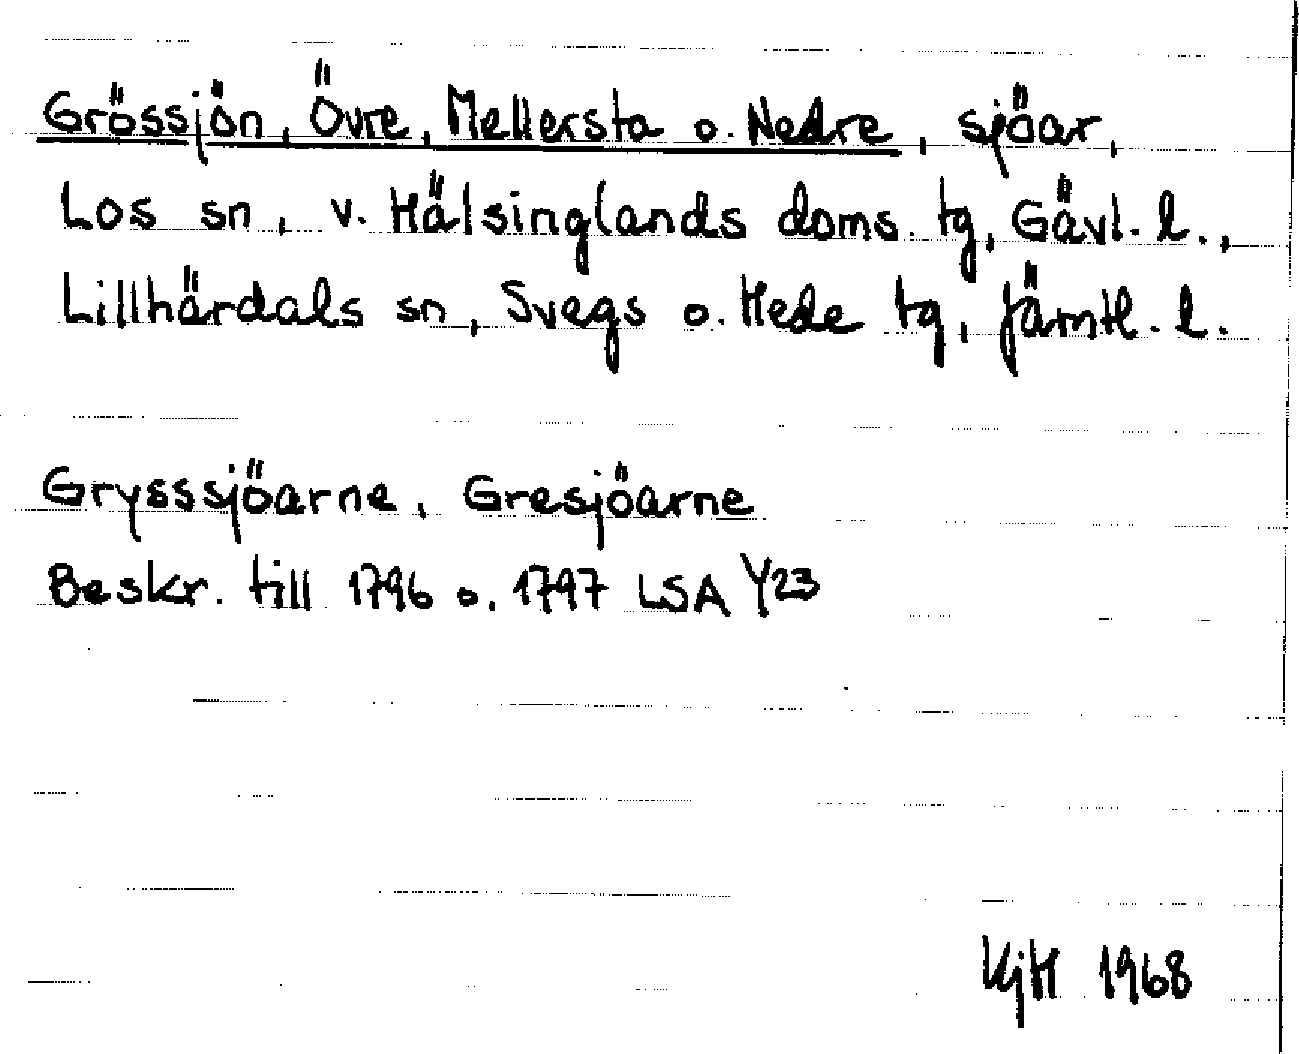 Grössjön, Övre, Mellersta o. Nedre, sjöar,
Los sn, v. Hälsinglands doms. tg, Gävl. l.,
Lillhärdals sn, Svegs o. Hede tg, Jämtl. l.
Grysssjöarne, Gresjöarne
Beskr. till 1796 o. 1797 LSA Y23
KjH 1968